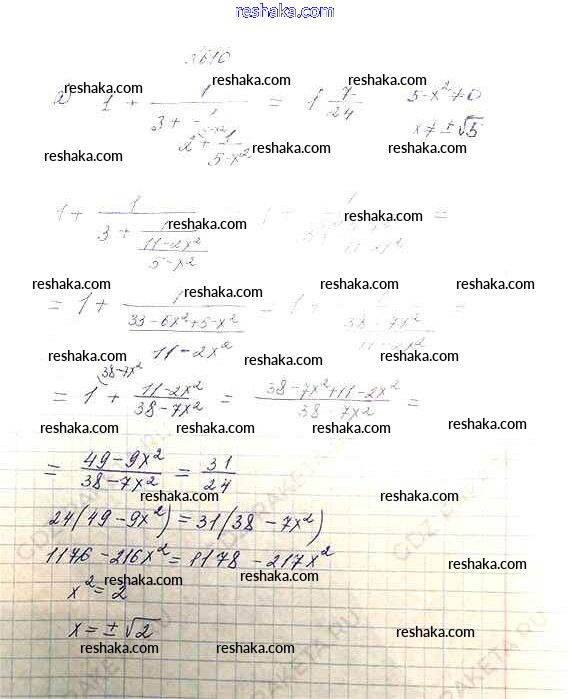 reshaka.com
№610
reshaka.com
reshaka.com
а) 1 + 1/(3 + 1/(2 + 1/(5-x²))) = 1 7/24    5-x² ≠ 0
x ≠ ±√5
reshaka.com
reshaka.com
reshaka.com
reshaka.com
reshaka.com
1 + 1/(3 + 1/((11-2x²)/(5-x²))) = 1 + =
reshaka.com
reshaka.com
reshaka.com
= 1 + 1/((33-6x²+5-x²)/(11-2x²)) = 1 + 1/((38-7x²)/(11-2x²)) =
reshaka.com
reshaka.com
reshaka.com
= 1 (38-7x² + (11-2x²)/(38-7x²) = (38-7x²+11-2x²)/(38-7x²) =
reshaka.com
reshaka.com
reshaka.com
= (49-9x²)/(38-7x²) = 31/24
reshaka.com
reshaka.com
24(49-9x²) = 31(38-7x²)
reshaka.com
reshaka.com
1176-216x² = 1178-217x²
reshaka.com
x² = 2
reshaka.com
reshaka.com
x = ±√2
reshaka.com
reshaka.com
reshaka.com
reshaka.com